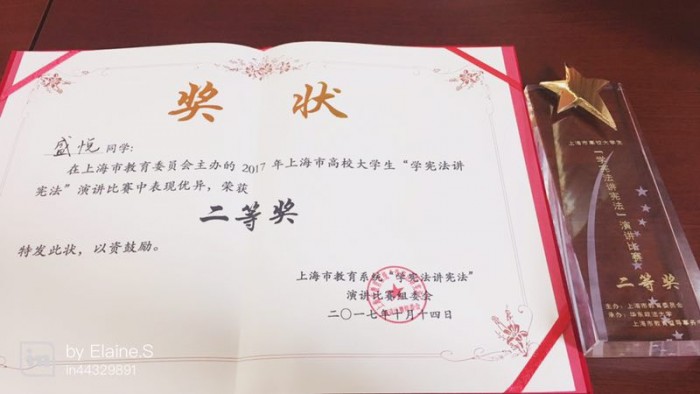 奖 状
盛悦 同学：
在上海市教育委员会主办的 2017 年上海市高校大学生“学宪法讲
宪法”演讲比赛中表现优异，荣获
二等奖
特发此状，以资鼓励。
上海市教育系统“学宪法讲宪法”
演讲比赛组委会
二〇一七年十月十四日
上海市高校大学生
“学宪法讲宪法”演讲比赛
二等奖
主办：上海市教育委员会
承办：华东政法大学
by Elaine.S
in44329891